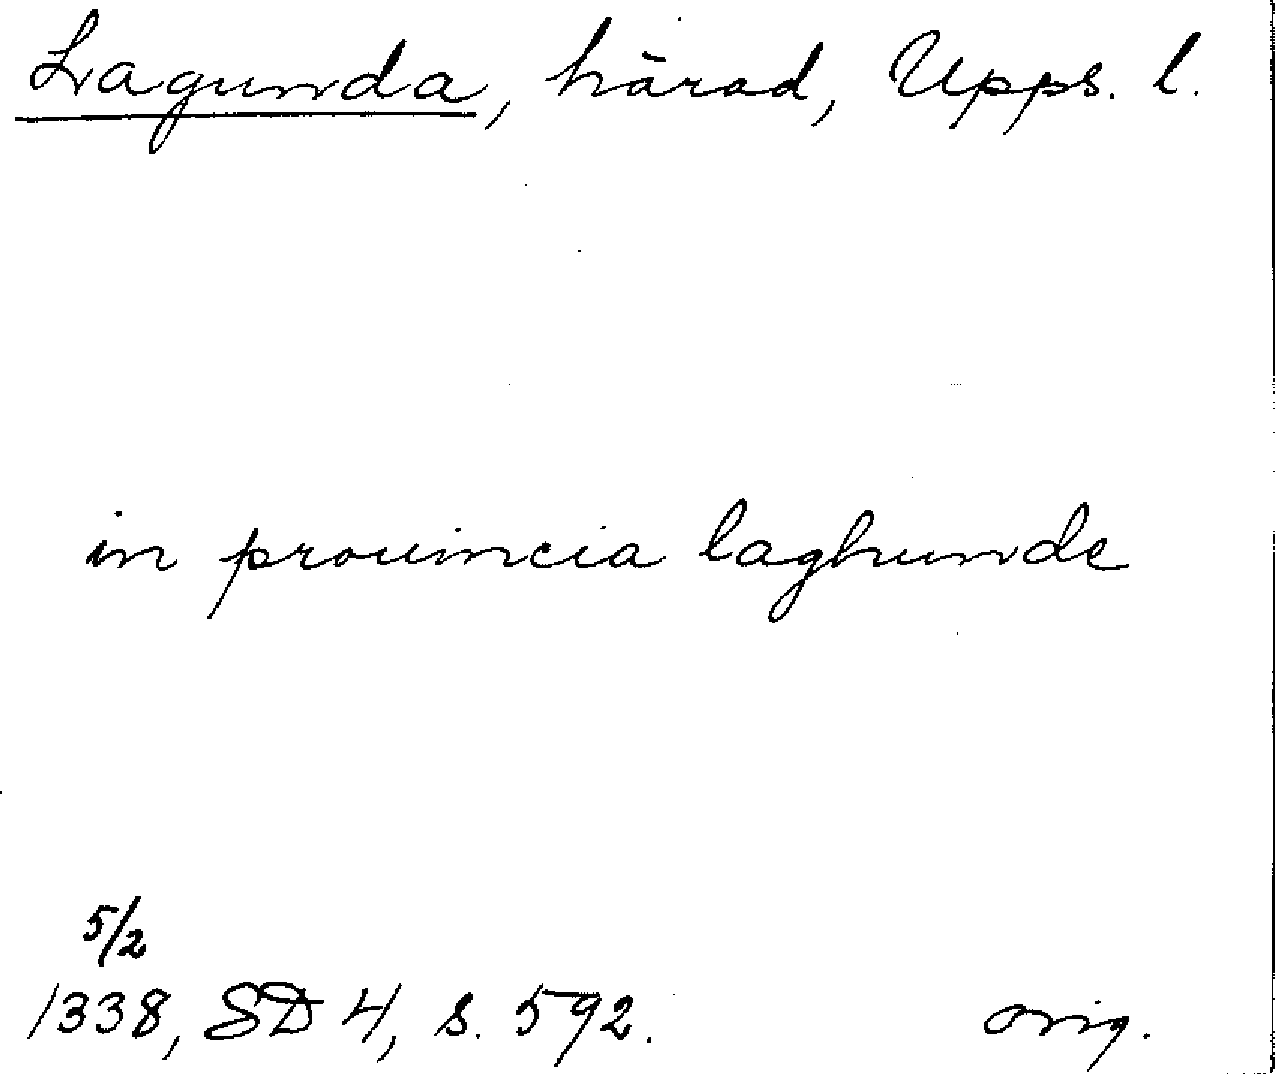 Lagunda, härad, Upps. l.
in prouincia laghunde
5/2
1338, SD 4, s. 592. orig.